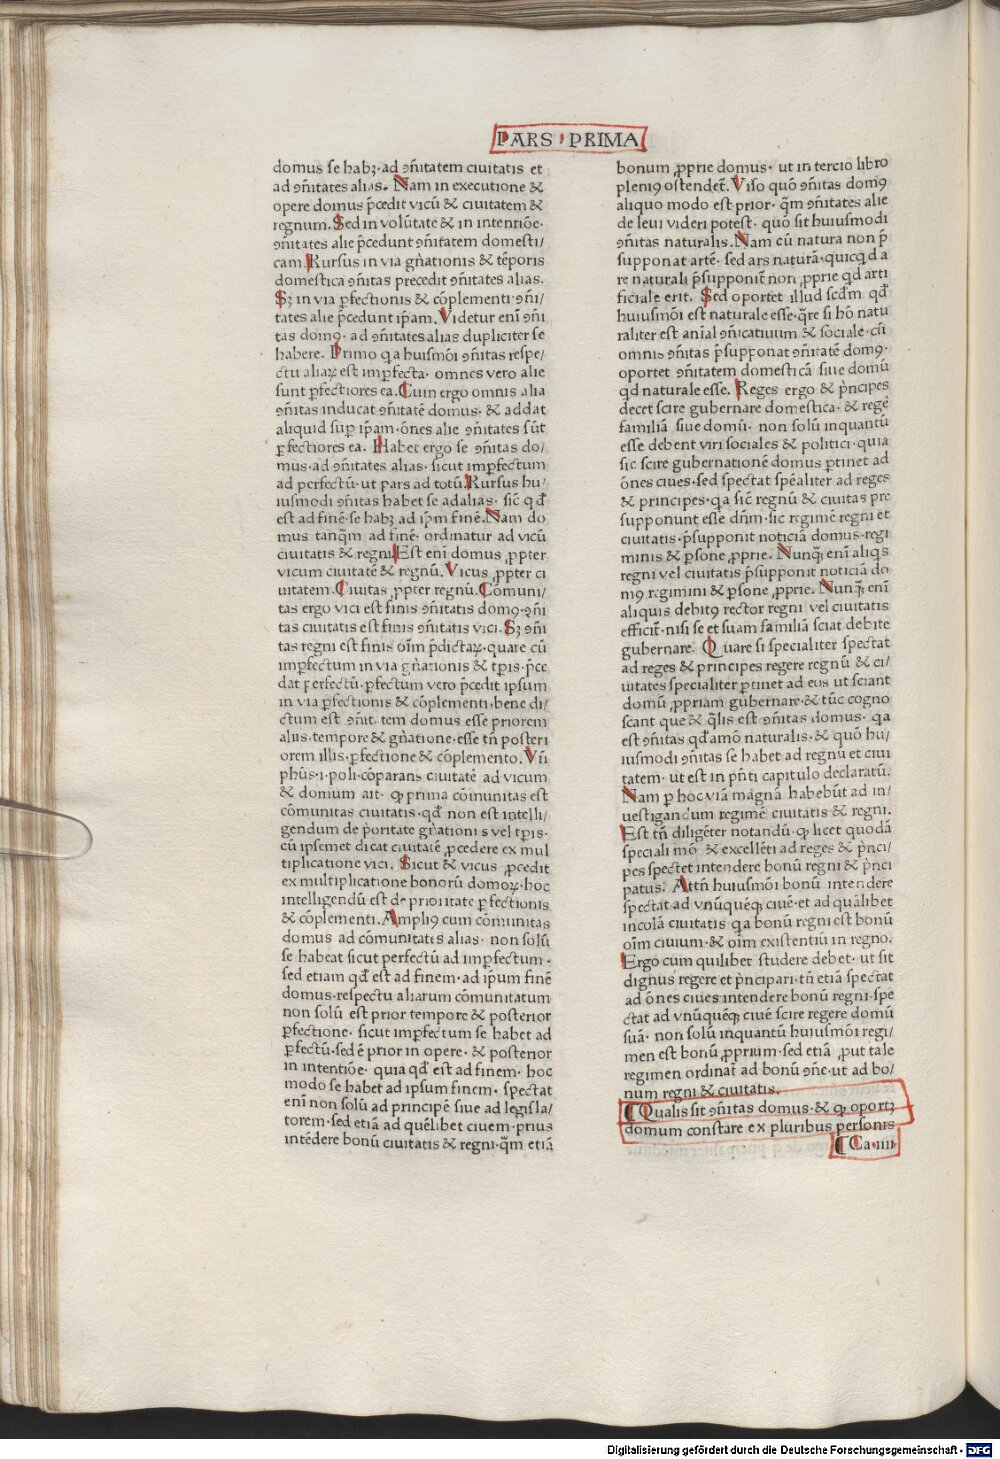 PARS PRIMA
domus se habꝫ·ad ꝯñitatem ciuitatis et
ad ꝯñitates alias. Nam in executione &
opere domus p̄cedit vicū & ciuitatem &
regnum. Sed in volūtate & in intentiōe·
ꝯñitates alie p̄cedunt ꝯñitatem domesti/
cam. Rursus in via gñationis & tēporis
domestica ꝯñitas precedit ꝯñitates alias.
Sꝫ in via ꝑfectionis & cōplementi·ꝯñi/
tates alie p̄cedunt ip̄am. Videtur eni ꝯñi
tas domꝰ· ad ꝯñitates alias dupliciter se
habere. Primo qa huiusmōi ꝯñitas respe/
ctu aliaꝝ est imꝑfecta· omnes vero alie
sunt ꝑfectiores ea. Cum ergo omnis alia
ꝯñitas inducat ꝯñitatē domus· & addat
aliquid suꝑ ip̄am·ōnes alie ꝯñitates sūt
ꝑfectiores ea. Habet ergo se ꝯñitas do/
mus·ad ꝯñitates alias·sicut imꝑfectum
ad perfectū·ut pars ad totū. Rursus hu/
iusmodi ꝯñitas habet se ad alias· sic̄ qd̄
est ad finē·se habꝫ ad ip̄m finē. Nam do
mus tanq̄m ad finē· ordinatur ad vicū
ciuitatis & regni. Est eni domus ꝓpter
vicum ciuitatē & regnū. Vicus ꝓpter ci
uitatem. Ciuitas ꝓpter regnū. Cōmuni/
tas ergo vici est finis ꝯñitatis domꝰ·ꝯñi
tas ciuitatis est finis ꝯñitatis vici. Sꝫ ꝯñi
tas regni est finis oīm p̄dictaꝝ·quare cū
imꝑfectum in via gñationis & tꝑis·p̄ce
dat perfectū·ꝑfectum vero p̄cedit ipsum
in via ꝑfectionis & cōplementi·bene di/
ctum est ꝯñitatem domus esse priorem
aliis·tempore & gñatione·esse tn̄ posteri
orem illis·ꝑfectione & cōplemento. Vn̄
phūs·i·poli·cōparans ciuitatē ad vicum
& domum ait· ꝙ prima cōmunitas est
cōmunitas ciuitatis·qd̄ non est intelli/
gendum de p̄oritate gñationis vel tꝑis·
cū ipsemet dicat ciuitatē ꝓcedere ex mul
tiplicatione vici. Sicut & vicus ꝓcedit
ex multiplicatione bonorū domoꝝ·hoc
intelligendū est de prioritate ꝑfectionis
& cōplementi. Ampliꝰ cum cōmunitas
domus ad cōmunitatis alias· non solū
se habeat sicut perfectū ad impfectum·
sed etiam qd̄ est ad finem·ad ip̄um finē
domus·respectu aliarum cōmunitatum
non solū est prior tempore & posterior
ꝑfectione· sicut imꝑfectum se habet ad
ꝑfectū·sed ē prior in opere·& posterior
in intentiōe· quia qd̄ est ad finem·hoc
modo se habet ad ipsum finem· spectat
eni non solū ad principē siue ad legisla/
torem·sed etiā ad quēlibet ciuem·prius
intēdere bonū ciuitatis & regni·q̄m etiā
bonum ꝓprie domus· ut in tercio libro
pleniꝰ ostendet̄. Viso quō ꝯñitas domꝰ
aliquo modo est prior· q̄m ꝯñitates alie
de leui videri potest· quō sit huiusmodi
ꝯñitas naturalis. Nam cū natura non p̄
supponat artē· sed ars naturā·quicqd a
re naturali p̄supponit̄ non ꝓprie qd arti
ficiale erit. Sed oportet illud scd̄m qd̄
huiusmōi est naturale esse·q̄re si hō natu
raliter est aīal ꝯñicatiuum & sociale·cū
omnis ꝯñitas p̄supponat ꝯñitatē domꝰ·
oportet ꝯñitatem domesticā siue domū
qd naturale esse. Reges ergo & p̄ncipes
decet scire gubernare domestica· & regē
familiā siue domū· non solū inquantū
esse debent viri sociales & politici·quia
sic scire gubernationē domus ꝑtinet ad
ōnes ciues·sed spectat spēaliter ad reges
& principes·qa sic̄ regnū & ciuitas pre
supponunt esse dn̄m·sic regimē regni et
ciuitatis·p̄supponit noticiā domus·regi
minis & ꝑsone ꝓprie. Nunqꝫ eni aliqs
regni vel ciuitatis p̄supponit noticiā do
mꝰ regimini & ꝑsone ꝓprie. Nunqꝫ eni
aliquis debitꝰ rector regni vel ciuitatis
efficit̄·nisi se et suam familiā sciat debite
gubernare. Quare si specialiter spectat
ad reges & principes regere regnū & ci/
uitates specialiter ꝑtinet ad eos ut sciant
domū ꝓpriam gubernare·& tūc cogno
scant que & q̄lis est ꝯñitas domus· qa
est ꝯñitas qd̄amō naturalis·& quō hu/
iusmodi ꝯñitas se habet ad regnū et ciui
tatem· ut est in p̄nti capitulo declaratū.
Nam ꝑ hoc viā magnā habebūt ad in/
uestigandum regimē ciuitatis & regni.
Est tn̄ diligēter notandū·ꝙ licet quodā
speciali mō & excellēti ad reges & p̄nci/
pes spectet intendere bonū regni & p̄nci
patus. Attn̄ huiusmōi bonū intendere
spectat ad vnūquēqꝫ ciuē·et ad quālibet
incolā ciuitatis qa bonū regni est bonū
oīm ciuium·& oīm existentiū in regno.
Ergo cum quilibet studere debet· ut sit
dignus regere et p̄ncipari·tn̄ etiā spectat
ad ōnes ciues intendere bonū regni·spe
ctat ad vnūquēqꝫ ciuē scire regere domū
suā· non solū inquantū huiusmōi regi/
men est bonū ꝓprium·sed etiā ꝓut tale
regimen ordinat̄ ad bonū ꝯñe·ut ad bo/
num regni & ciuitatis.
¶ Qualis sit ꝯñitas domus·& ꝙ oportꝫ
domum constare ex pluribus personis
¶ Ca·iiii·
Digitalisierung gefördert durch die Deutsche Forschungsgemeinschaft - DFG